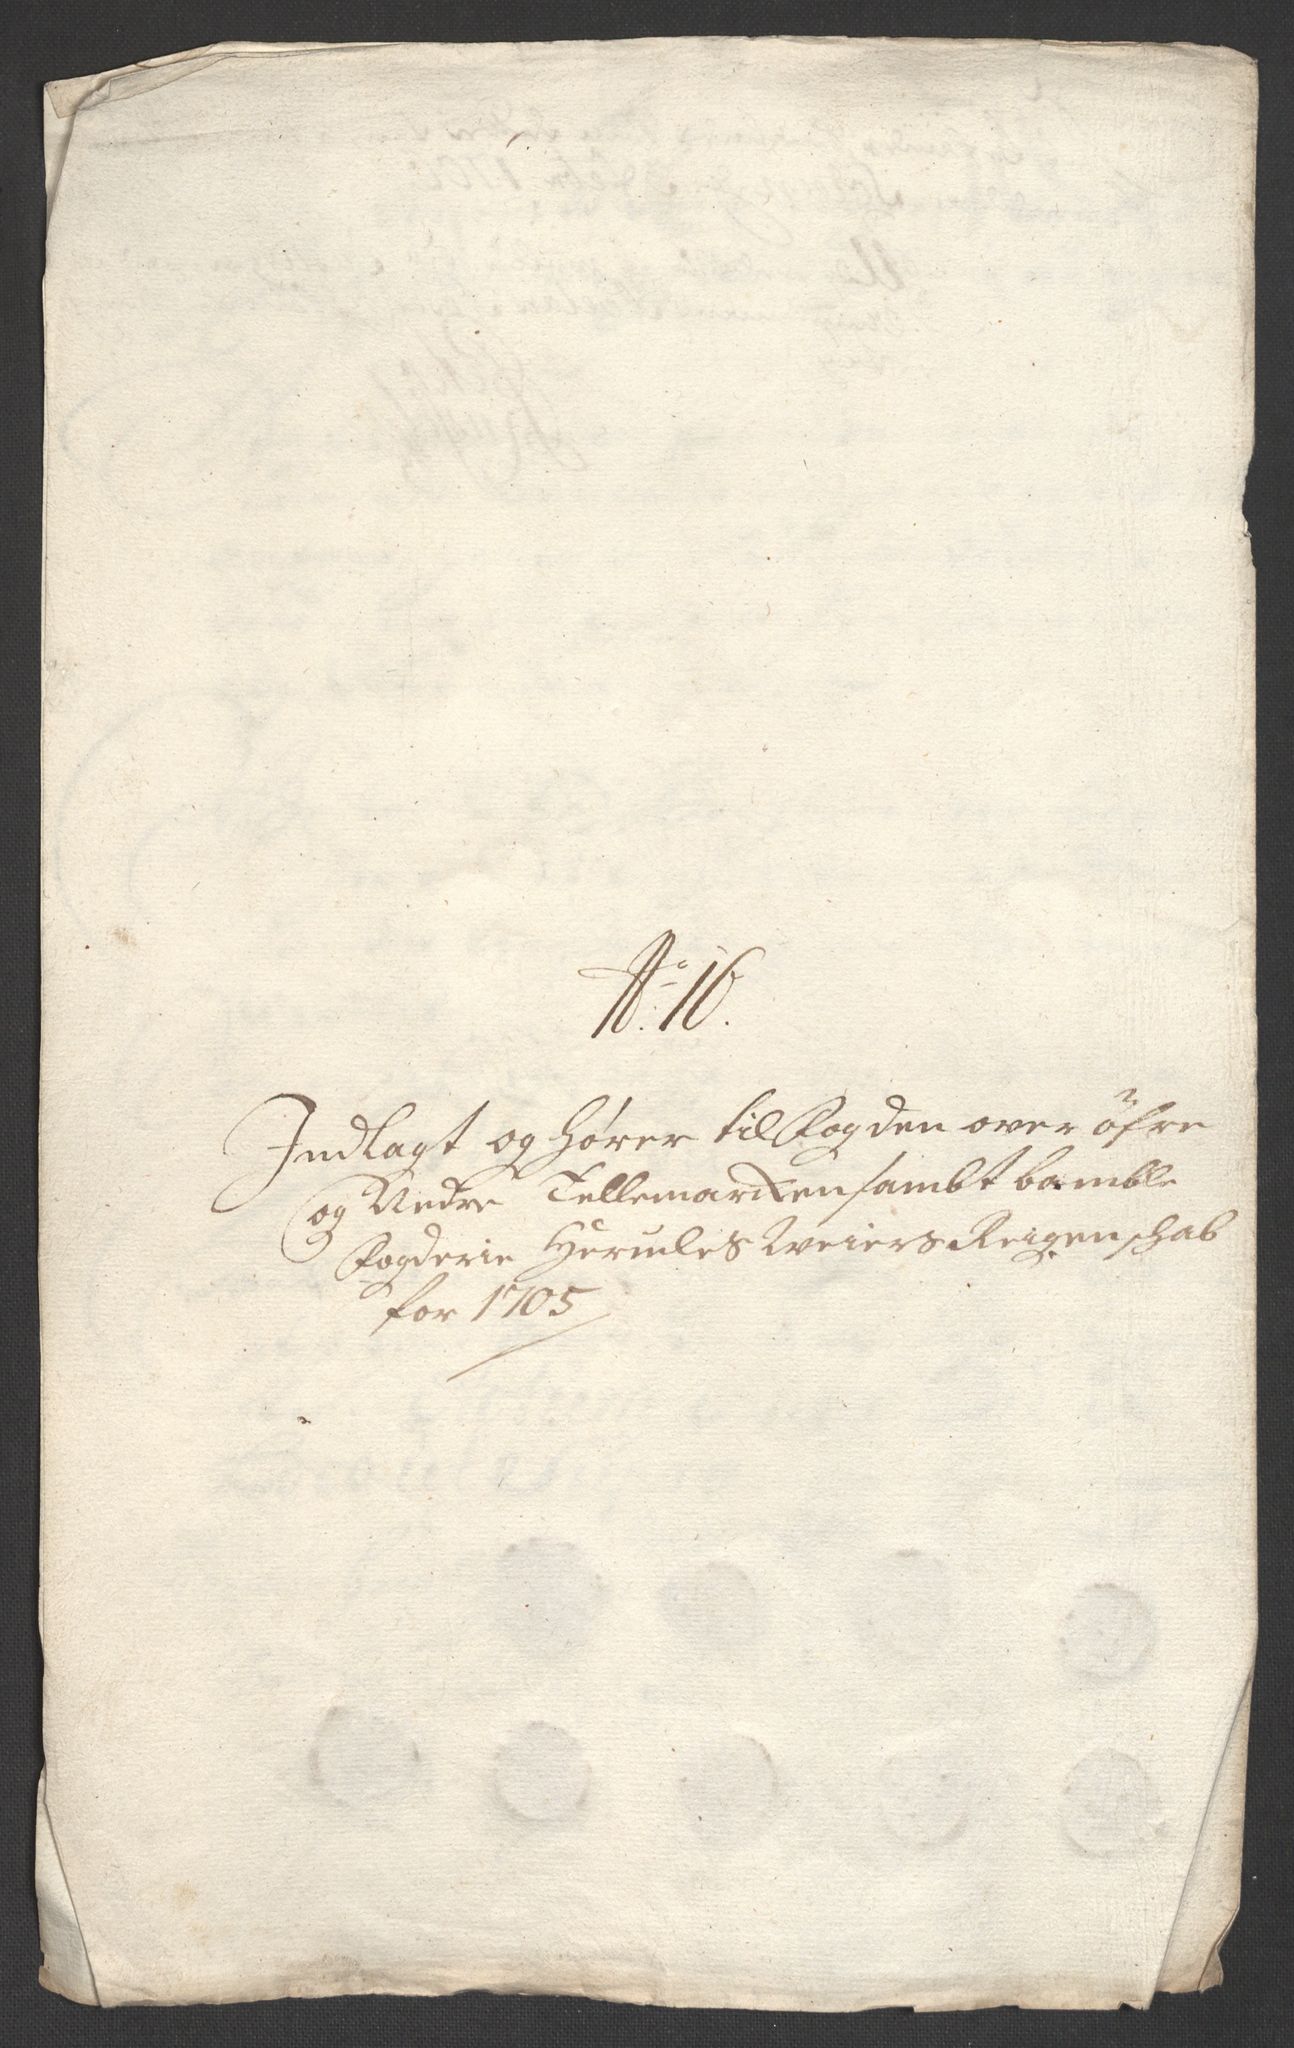 No: 16.
Indlagt og hører til Fogden over öfre
og Nedre Tellemarcken sambt bamble
Fogderie Herules Weiers Reigenschab
for 1705